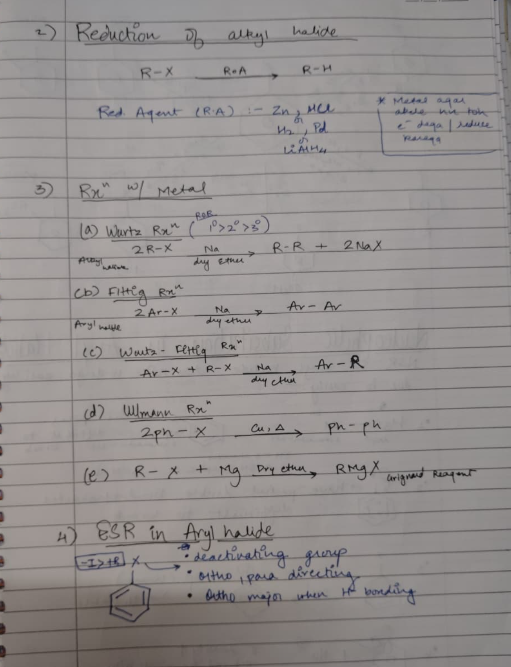 2) Reduction of alkyl halide
R-X R.A R-H
Red. Agent (R.A) :- Zn, HCl
or
H2, Pd
or
LiAlH4
* Metal agar
akele hai toh
e⁻ dega / reduce
karega
3) Rxⁿ w/ Metal
(a) Wurtz Rxⁿ (ROR 1°>2°>3°)
2R-X Na dry Ether R-R + 2NaX
Alkyl halide
(b) Fittig Rxⁿ
2Ar-X Na dry ether Ar-Ar
Aryl halide
(c) Wurtz-Fittig Rxⁿ
Ar-X + R-X Na dry ether Ar-R
(d) Ulmann Rxⁿ
2ph-X Cu, Δ ph-ph
(e) R-X + Mg Dry ether RMgX Grignard Reagent
4) ESR in Aryl halide
-I>+R X • deactivating group
• ortho, para directing
• Ortho major when H bonding